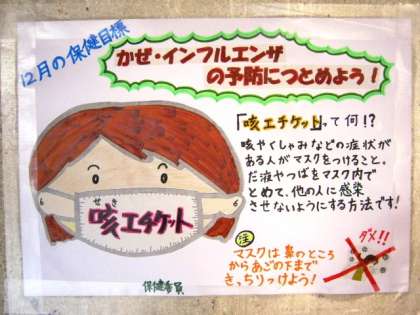 12月の保健目標
かぜ・インフルエンザ
の予防につとめよう！
「咳エチケット」って何！？
咳やくしゃみなどの症状が
ある人がマスクをつけること。
だ液やつばをマスク内で
とめて、他の人に感染
させないようにする方法です！
せき
咳エチケット
注
マスクは鼻のところ
からあごの下まで
きっちりつけよう！
ダメ！！
保健委員